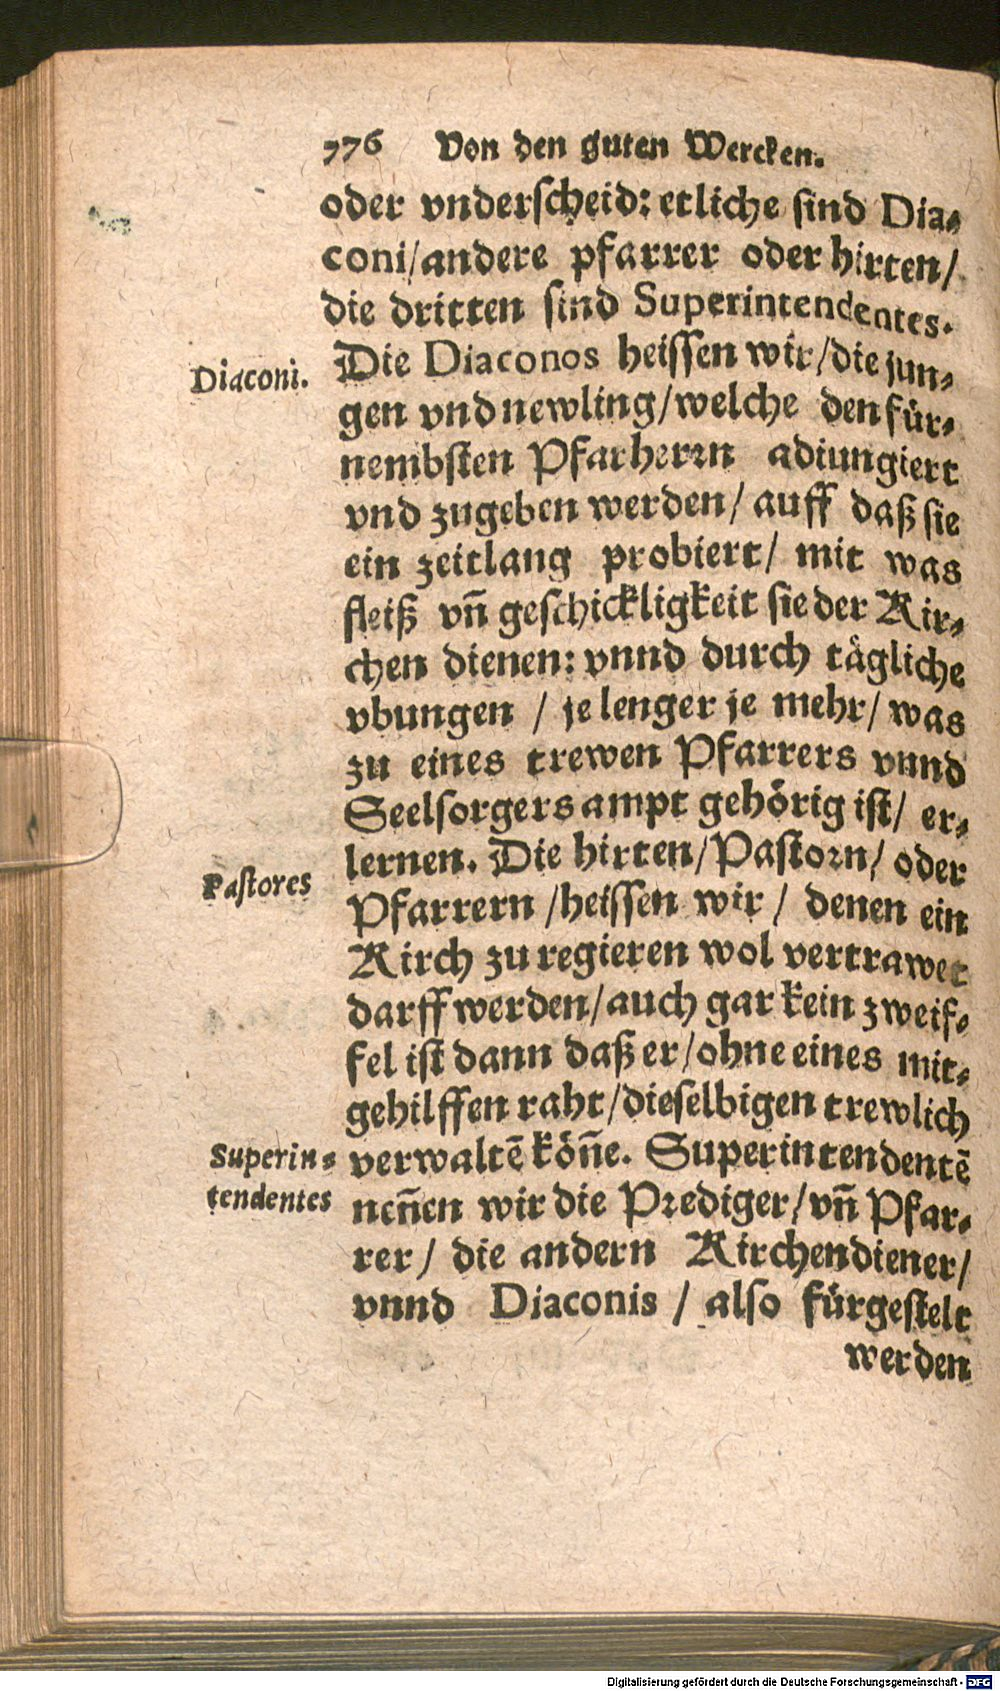 776 Von den guten Wercken.
oder vnderscheid: etliche sind Dia-
coni/andere pfarrer oder hirten/
die dritten sind Superintendentes.
Diaconi.
Die Diaconos heissen wir/die jun-
gen vnd newling/welche den für-
nembsten Pfarherrn adiungiert
vnd zugeben werden/ auff daß sie
ein zeitlang probiert/ mit was
fleiß vñ geschickligkeit sie der Kir-
chen dienen: vnnd durch tägliche
vbungen / je lenger je mehr/ was
zu eines trewen Pfarrers vnnd
Seelsorgers ampt gehörig ist/ er-
lernen. Die hirten/Pastorn/ oder
Pastores
Pfarrern /heissen wir / denen ein
Kirch zu regieren wol vertrawet
darff werden/auch gar kein zweif-
fel ist dann daß er/ohne eines mit-
gehilffen raht/dieselbigen trewlich
Superin-
verwaltẽ köñe. Superintendentẽ
tendentes
neñen wir die Prediger/vñ Pfar-
rer/ die andern Kirchendiener/
vnnd Diaconis / also fürgestelt
werden
Digitalisierung gefördert durch die Deutsche Forschungsgemeinschaft - DFG